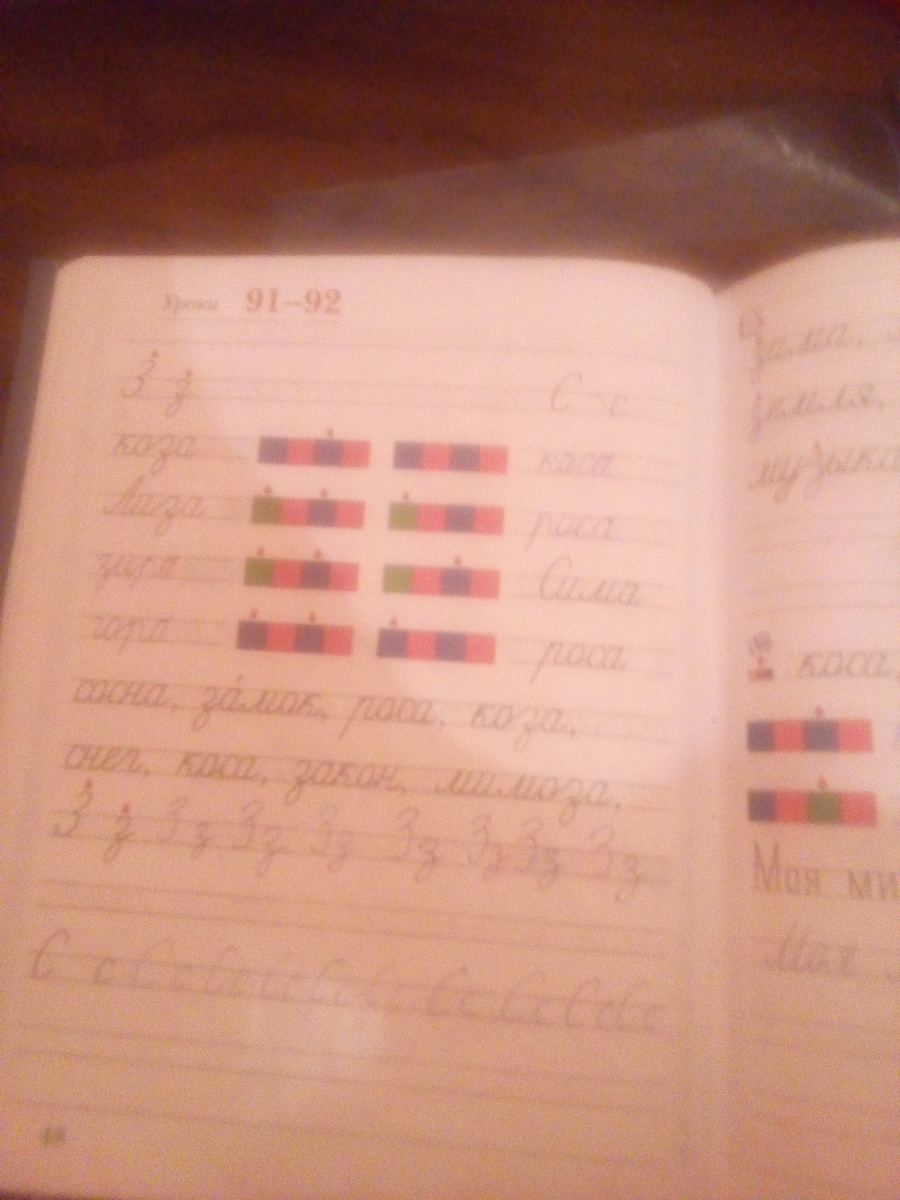 Уроки 91–92
З з С с
коза коса
Лиза роса
Сима
роса
сосна, за́мок, роса, коза,
снег, коса, закон, мимоза,
З з З з З з З з З з З з З з З з
С с С с С с С с С с С с С с С с С с
зима,
земля,
музыка
коса,
Моя
Моя